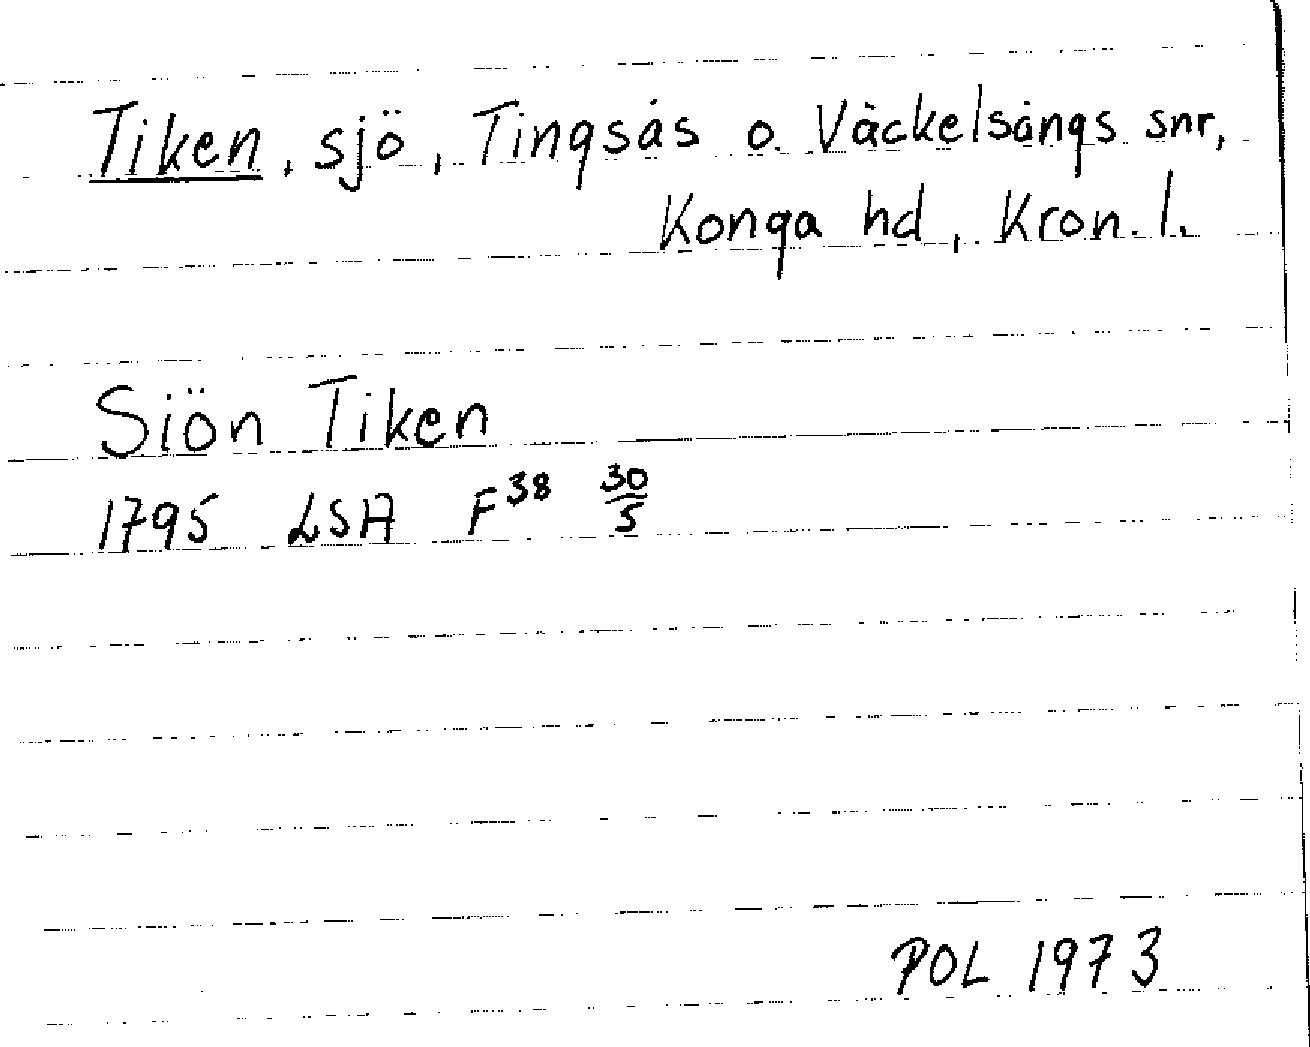 Tiken, sjö, Tingsås o. Väckelsångs snr,
Konga hd, Kron. l.
Siön Tiken
1795 LSA F38 30/5
POL 1973